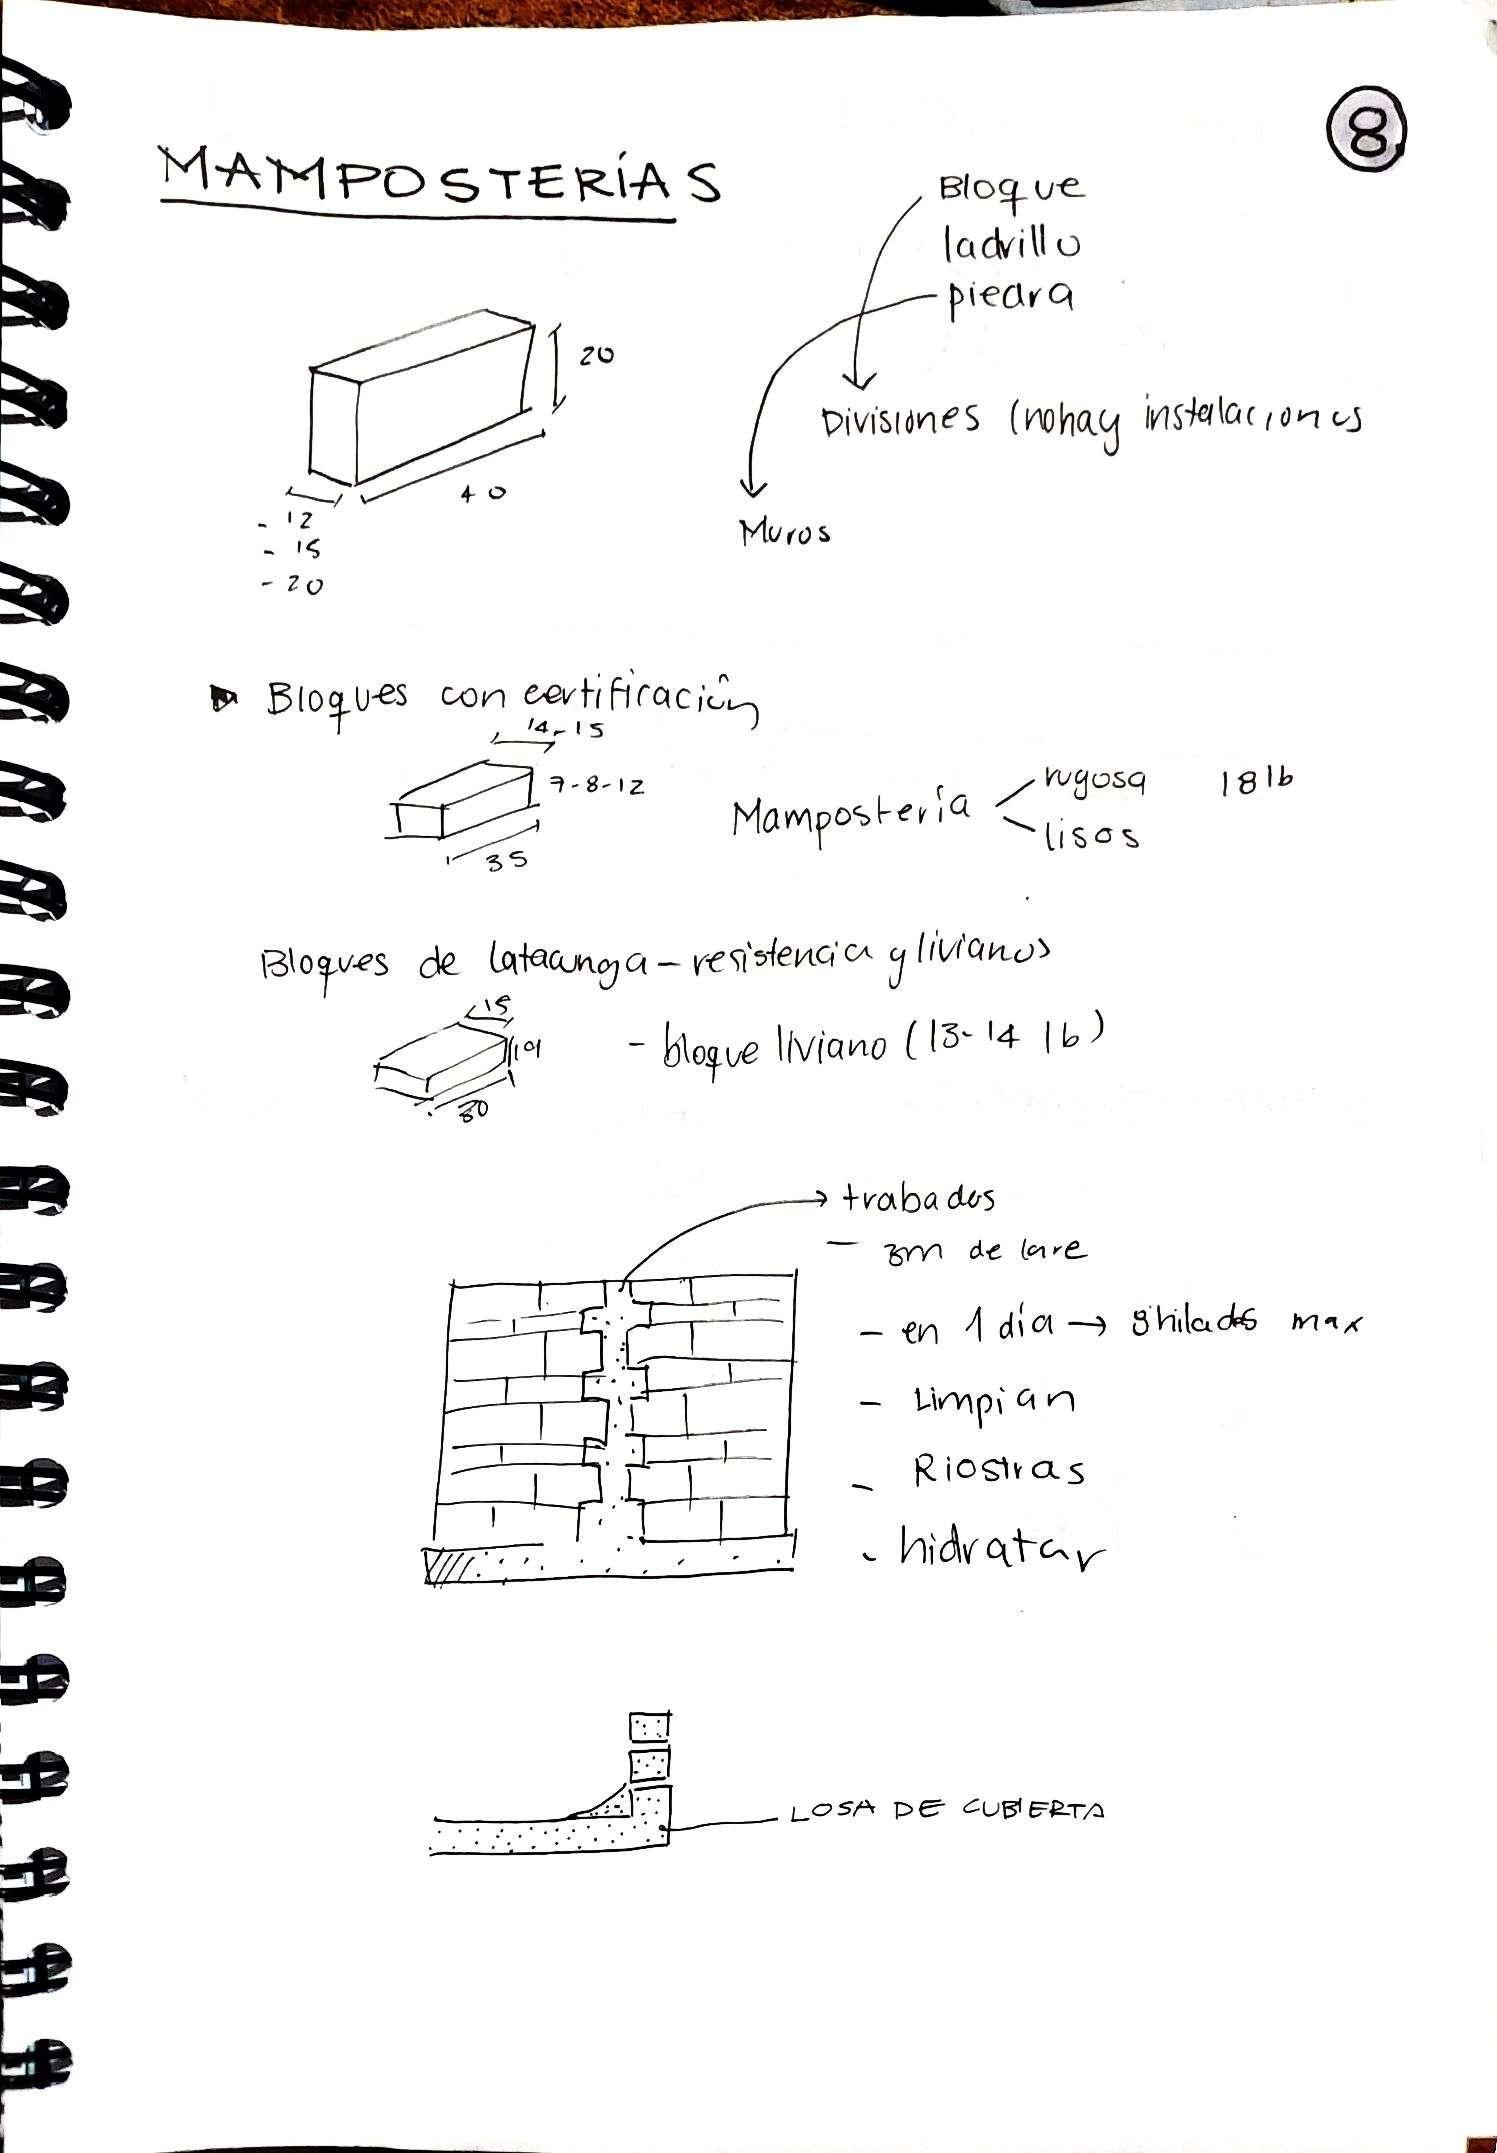 8
MAMPOSTERÍAS
Bloque
ladrillo
piedra
20
40
- 12
- 15
- 20
Divisiones (no hay instalaciones
Muros
Bloques con certificación
14-15
7-8-12
35
Mampostería
rugosa 18 lb
lisos
Bloques de Latacunga - resistencia y livianos
15
30
- bloque liviano (13-14 lb)
trabados
- 3m de
- en 1 día → hiladas max
- Limpian
- Riostras
- hidratar
LOSA DE CUBIERTA